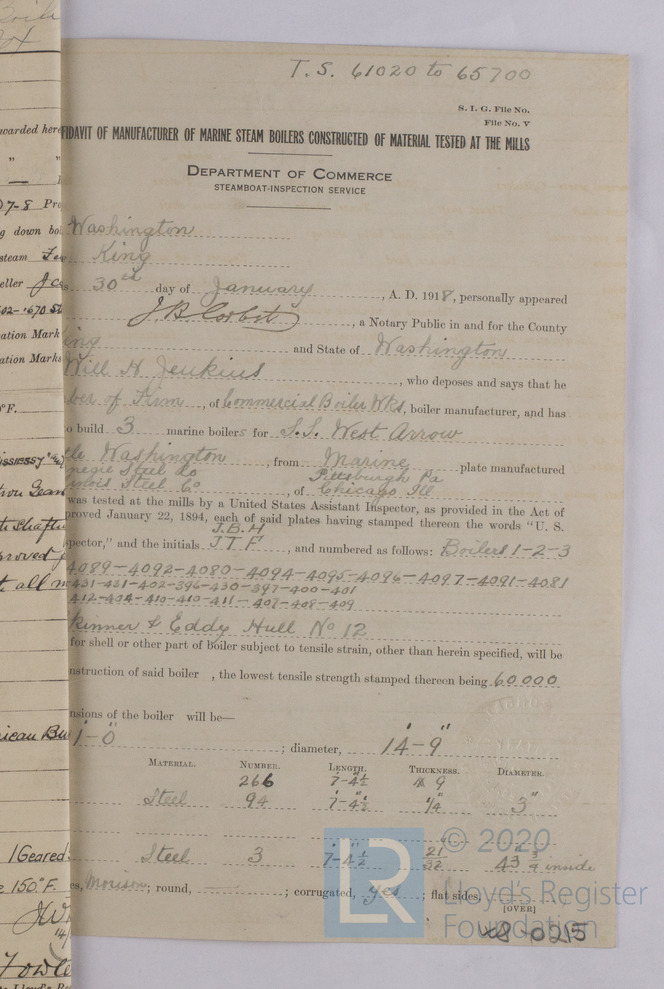 T. S. 61020 to 65700
S. I. G. File No.
File No. V
FIDAVIT OF MANUFACTURER OF MARINE STEAM BOILERS CONSTRUCTED OF MATERIAL TESTED AT THE MILLS
DEPARTMENT OF COMMERCE
STEAMBOAT-INSPECTION SERVICE
Washington
King
30th day of January, A. D. 1918, personally appeared
J. B. Corbet, a Notary Public in and for the County
ing and State of Washington
Will H Jenkins, who deposes and says that he
ber of Firm, of Commercial Boiler Wks, boiler manufacturer, and has
o build 3 marine boilers for S.S. West Arrow
tle Washington, from Marine plate manufactured
negie Steel Co Pittsburgh Pa
linois Steel Co, of Chicago Ill
was tested at the mills by a United States Assistant Inspector, as provided in the Act of
proved January 22, 1894, each of said plates having stamped thereon the words "U. S.
J. B. H
spector," and the initials J T F, and numbered as follows: Boilers 1-2-3
4089-4092-4080-4094-4095-4096-4097-4091-4081
431-431-402-396-430-397-400-401
412-404-410-410-411-407-408-409
kinner & Eddy Hull No 12
for shell or other part of boiler subject to tensile strain, other than herein specified, will be
nstruction of said boiler, the lowest tensile strength stamped thereon being 60000
nsions of the boiler will be—
1'-0"; diameter, 14'-9"
MATERIAL. NUMBER. LENGTH. THICKNESS. DIAMETER.
266 7'-4½" 9
Steel 94 7'-4½" ¼ 3"
Steel 3 7-4½ 21/32 43 ¾ inside
es, Morison; round, ; corrugated, yes; flat sides,
[OVER]
© 2020
LR
Lloyd's Register
Foundation
-0215
warded here
" "
07-8 Pro
g down boi
steam
eller
ation Mark
ation Marks
°F.
rican Bu
1 Geared
150°F.